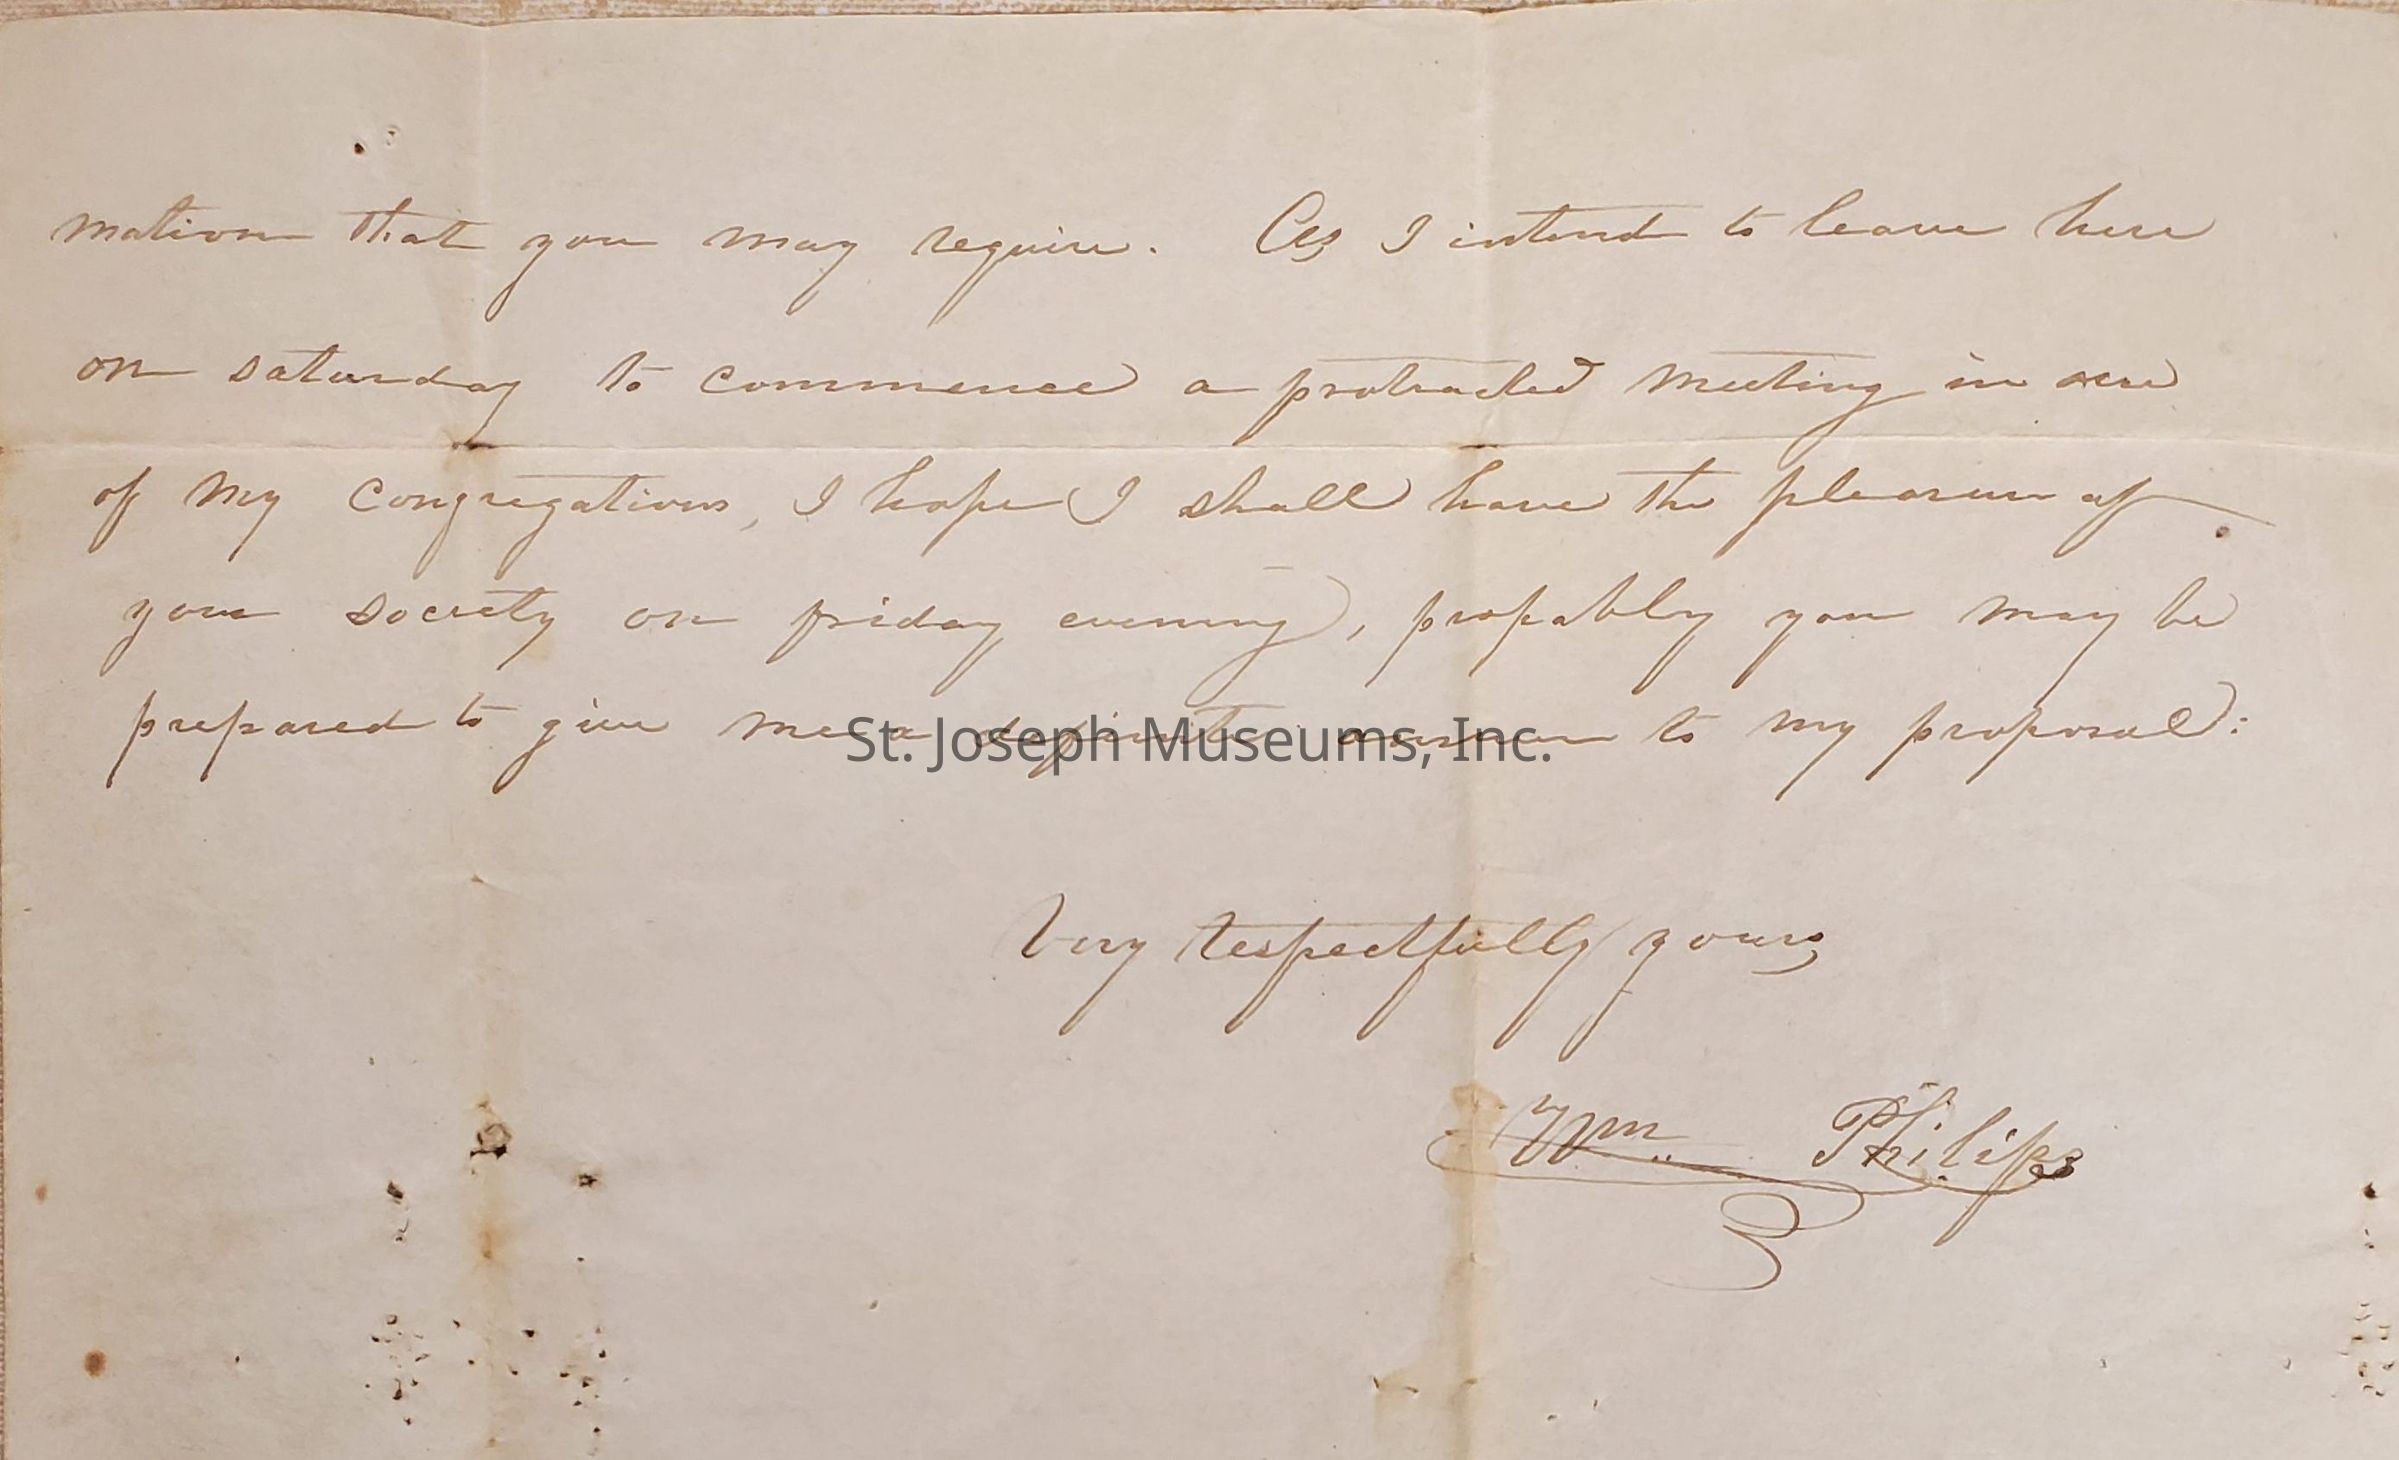 mation that you may require. As I intend to leave here
on saturday to commence a protracted meeting in one
of my congregations, I hope I shall have the pleasure of
your society on friday evening, propably you may be
prepared to give me a definite answer to my proposal:
St. Joseph Museums, Inc.
Very respectfully yours
Wm Philips